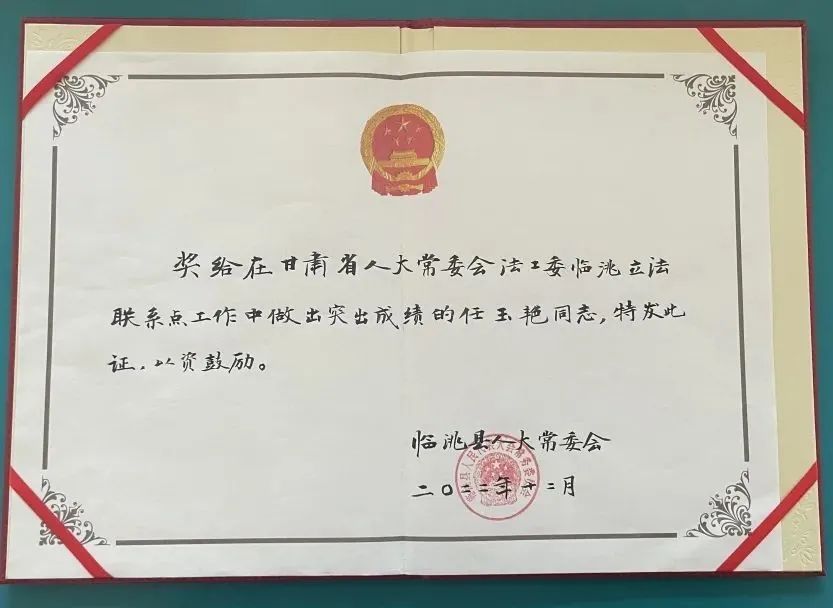 奖给在甘肃省人大常委会法工委临洮立法
联系点工作中做出突出成绩的任玉艳同志,特发此
证,以资鼓励。
临洮县人大常委会
临洮县人民代表大会常务委员会
二〇二二年十二月